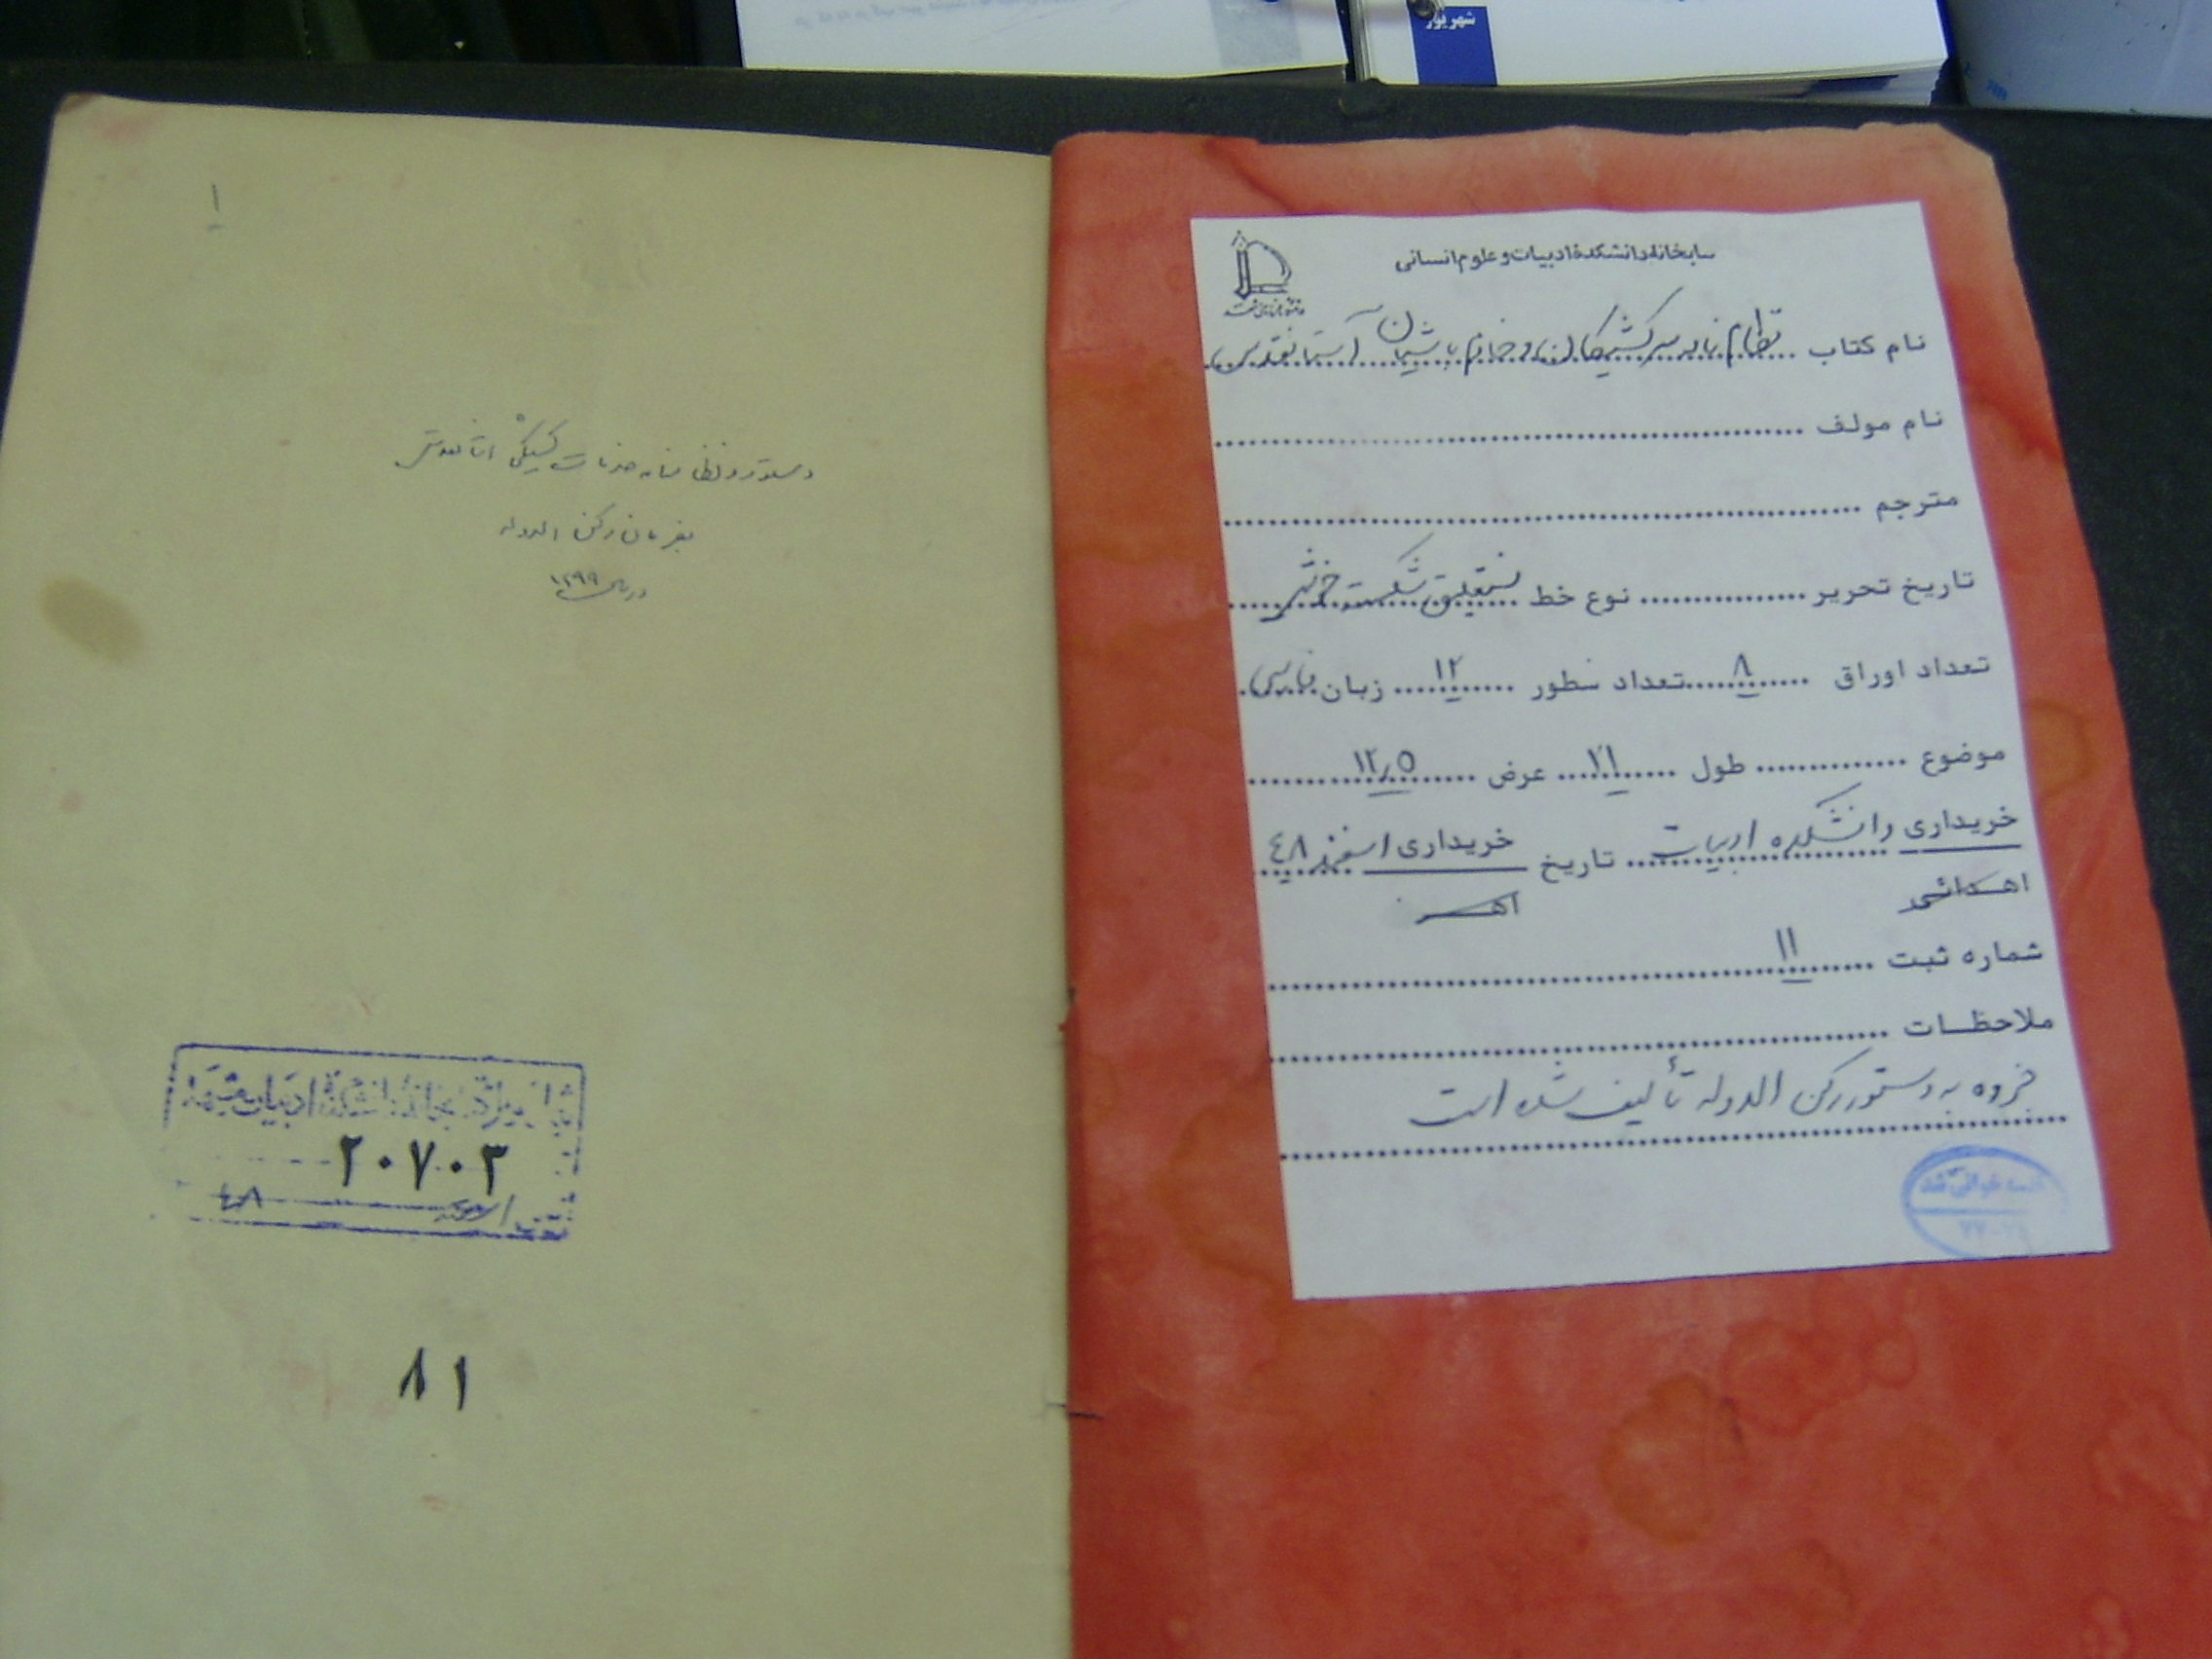 شهریور
کتابخانه دانشکدهٔ ادبیات و علوم انسانی
نام کتاب نظام نامه سرکشیکان و خادم باشیان آستانقدس
نام مولف
مترجم
تاریخ تحریر نوع خط نستعلیق شکسته خوش
تعداد اوراق ۸ تعداد سطور ۱۲ زبان فارسی
موضوع طول ۲۱ عرض ۱۲٫۵
خریداری دانشکده ادبیات تاریخ خریداری اسفند ٤٨
اهدائی
شماره ثبت ۱۱
ملاحظات
جزوه به دستور رکن الدوله تألیف شده است
۱
دستور و نظامنامه خدمات کشیک آستانقدس
بفرمان رکن الدوله
در سال ۱۲۹۹
کتابخانهٔ دانشکدهٔ ادبیات مشهد
۲۰۷۰۳
٤٨
۸۱